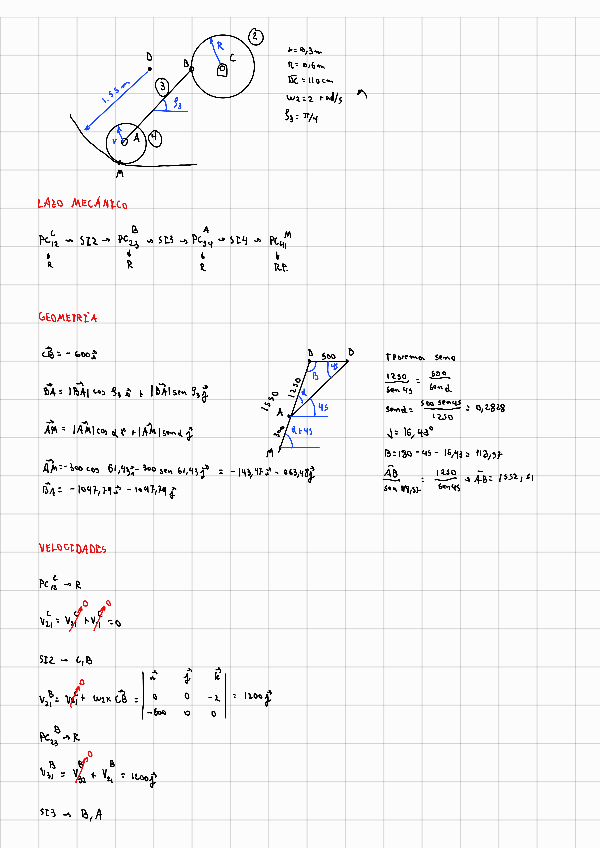 2
R
C
D
B
1.55 m
3
φ3
r
A
4
M
r = 0,3m
R = 0,6m
DC = 110cm
ω2 = 2 rad/s
φ3 = π/4
LAZO MECÁNICO
PC12^C → SI2 → PC23^B → SI3 → PC34^A → SI4 → PC41^M
R R R RP.
GEOMETRÍA
CB = -600i
BA = |BA| cos φ3 i + |BA| sen φ3 j
AM = |AM| cos α i + |AM| sen α j
AM = -300 cos 61,43 i - 300 sen 61,43 j = -143,47 i - 263,48 j
BA = -1047,79 i - 1047,79 j
B 500 D
B 45
1550 1250
α
A 45
300 α+45
M
Teorema seno
1250/sen 45 = 500/sen α
sen α = 500 sen 45/1250 = 0,2828
α = 16,43°
B = 180 - 45 - 16,43 = 118,57
AB/sen 118,57 = 1250/sen 45 → AB = 1552,51
VELOCIDADES
PC12^C → R
V21^C = V21^C + V11^C = 0
0 0
SI2 → C,B
V21^B = V21^C + ω2 x CB = | i j k | = 1200 j
0 0 0 -2
-600 0 0
PC23^B → R
V31^B = V32^B + V21^B = 1200 j
0
SI3 → B, A